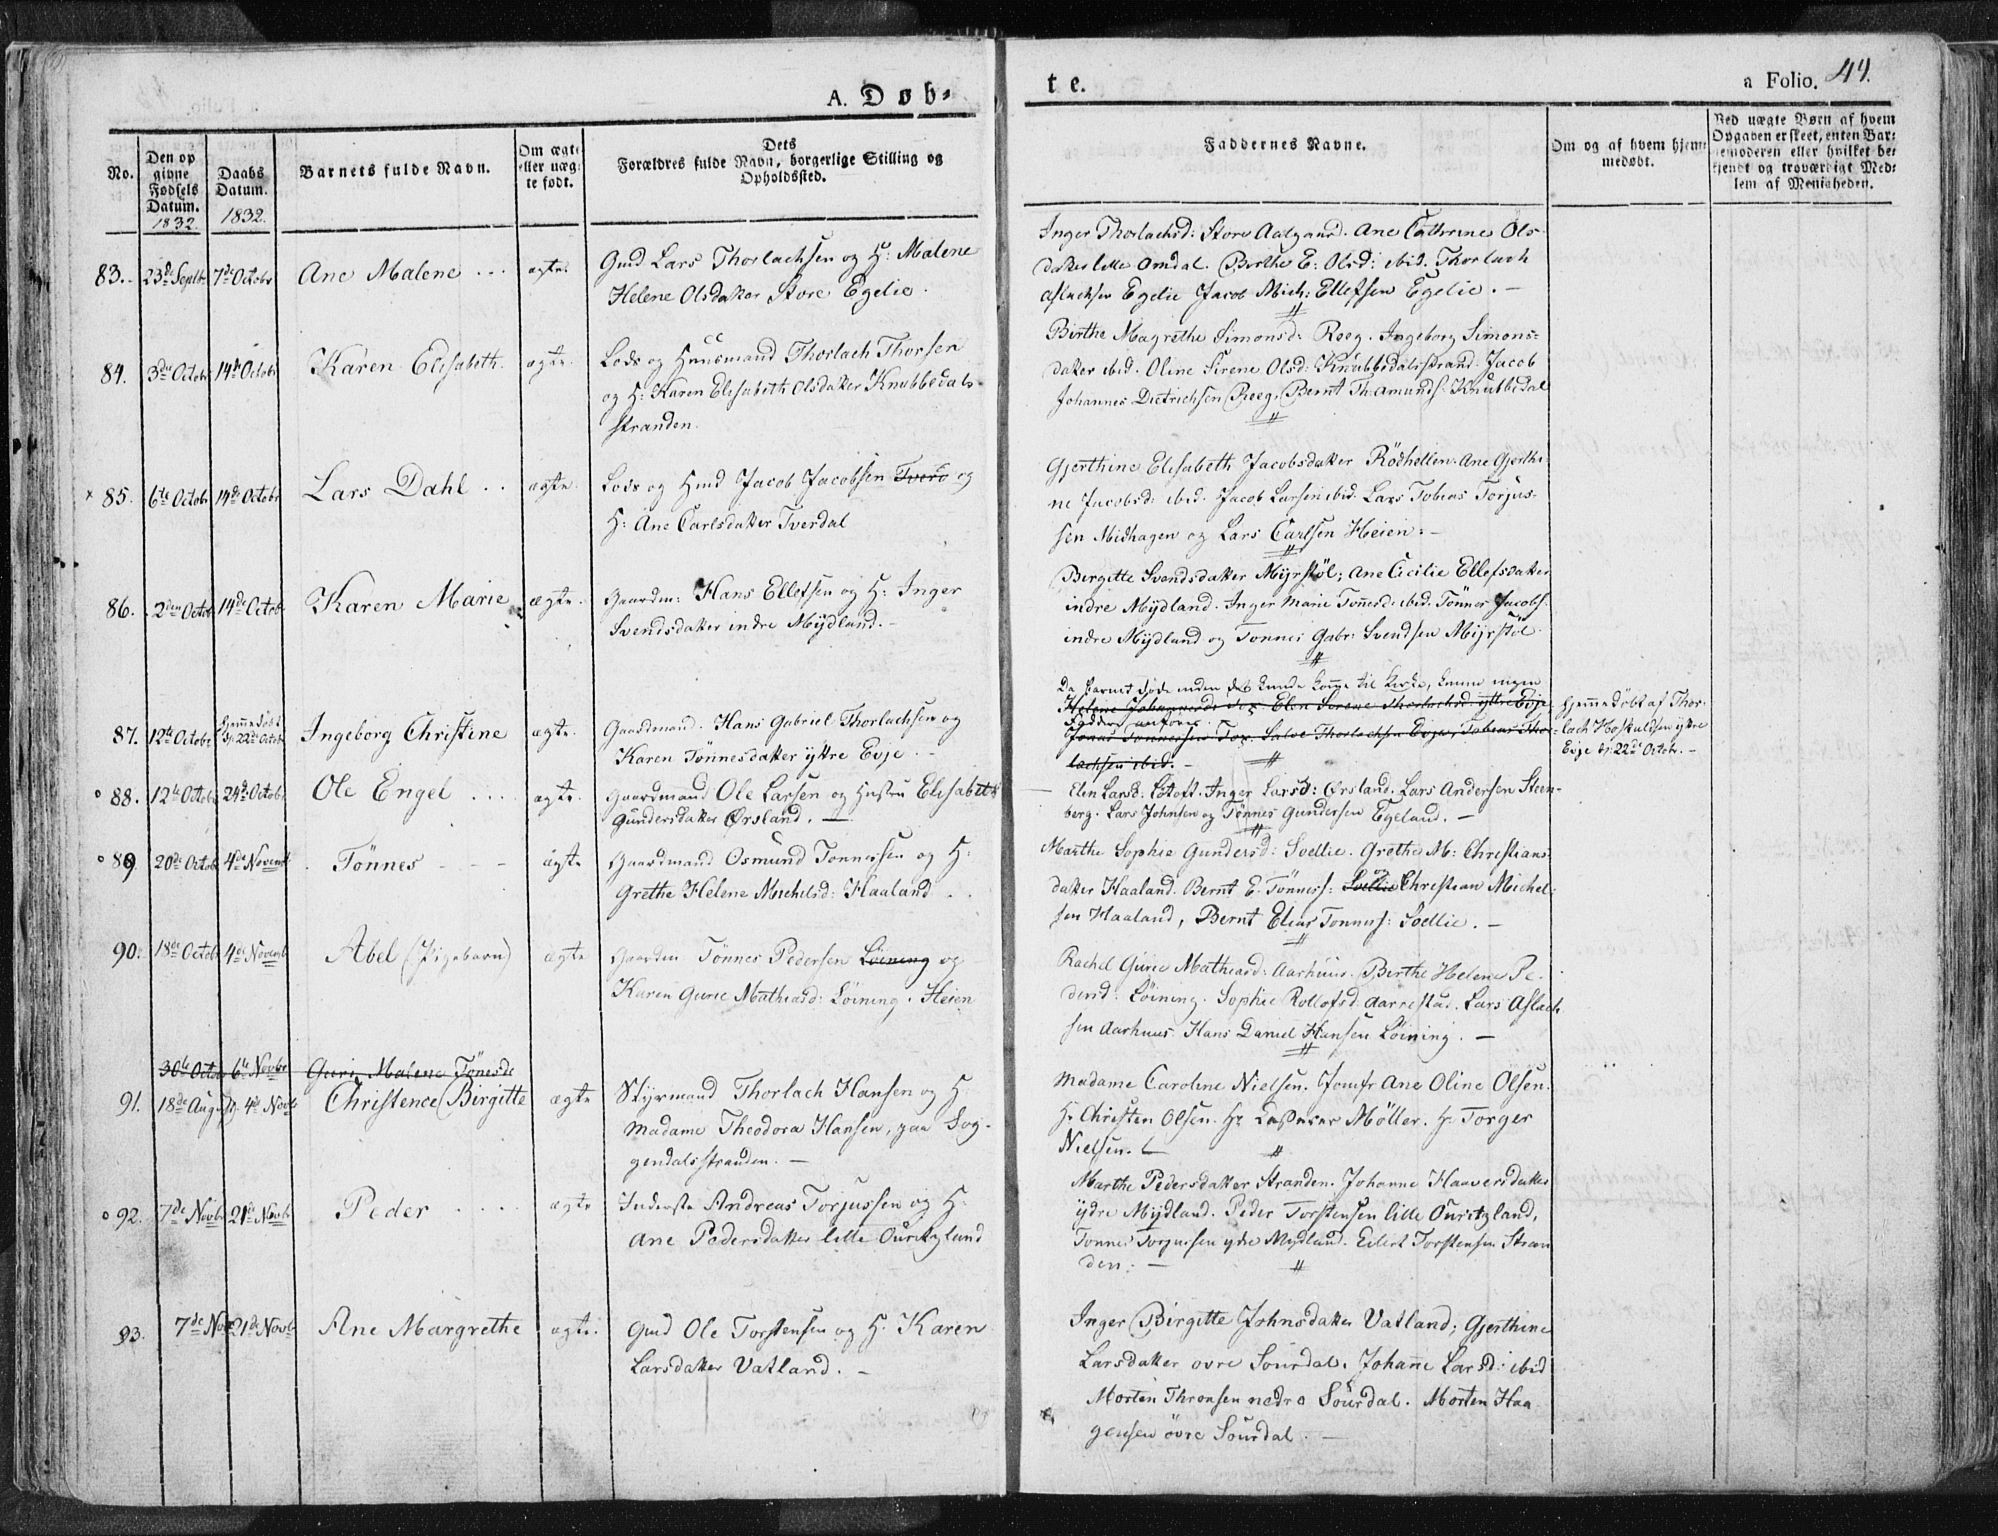 A. Døb=
te.
a Folio. 44.
No.
Den op
givne
Fødsels
Datum.
1832.
Daabs
Datum.
1832.
Barnets fulde Navn.
Om ægte
eller uæg=
te født.
Dets
Forældres fulde Navn, borgerlige Stilling og
Opholdssted.
Faddernes Navne.
Om og af hvem hjem=
medøbt.
Ved uægte Børn af hvem
Opgaven er skeet, enten Bar=
nemoderen eller hvilket be=
kjendt og troværdigt Med=
lem af Menigheden.
83. 23de Septbr 7de Octobr Ane Malene ... ægte.
Gmd Lars Thorlachsen og H: Malene
Helene Olsdatter Store Egelie.
Inger Thorlachsd: Store Aalgaard. Ane Cathrine Ols
datter lille Omdal. Birthe E: Olsd: ibid. Thorlach
Aslachsen Egelie Jacob Mich: Ellefsen Egelie. -
84. 3de Octobr 14de Octobr Karen Elisabeth. ægte.
Lods og Huusmand Thorlach Thorsen
og H: Karen Elisabeth Olsdatter Knubbedals
stranden.
Birthe Magrethe Simonsd: Reeg. Ingeborg Simons=
datter ibid. Oline Sirene Olsd: Knubbedalsstrand. Jacob
Johannes Dietrichsen Reeg. Bernt Th: Amunds: Knubbedal
85. 6te Octobr 14de Octobr Lars Dahl .. ægte.
Lods og Hmd Jacob Jacobsen Tverd og
H: Ane Carlsdatter Tverdal
Gjerthine Elisabeth Jacobsdatter Rödhellen. Ane Gjerthi=
ne Jacobsd: ibid. Jacob Larsen ibid. Lars Tobias Torjus=
sen Midhagen og Lars Carlsen Heien. -
86. 2den Octob 14de Octob Karen Marie ægte.
Gaardm: Hans Ellefsen og H: Inger
Svendsdatter indre Mÿdland. -
Birgitte Svendsdatter Mÿrstøl; Ane Cicilie Ellefsdatter
indre Mÿdland. Inger Marie Tønnesd: ibid. Tönnes Jacobs:
indre Mÿdland og Tonnes Gabr: Svendsen Mÿrstöl.
87. 12te Octobr Hjemmedöbt 22de Octobr Ingeborg Christine ægte.
Gaardmand. Hans Gabriel Thorlachsen og
Karen Tönnesdatter ÿttre Evje
Da barnet døde inden det kunde komme til Kirke, kunne ingen
Faddere anføres.
Helene Johannesd: Elen Serene Thorlachsd: yttre Evje
Jonas Tönnesen Salve Thorlachsen Evje, Tobias Thor=
lachsen ibid. -
Hjemmedöbt af Thor=
lach Hoskuldsen yttre
Evje d: 22de Octobr. -
88. 12te Octobr 24de Octobr Ole Engel .... ægte.
Gaardmand Ole Larsen og Hustru Elisabeth
Gundersdatter Ørsland. -
Elen Larsd: Lotoft. Inger Larsd: Ørsland. Lars Andersen Steen=
berg. Lars Johnsen og Tønnes Gundersen Egeland. -
89. 20de Octob 4de Novembr Tönnes - - - ægte
Gaardmand Osmund Tonnessen og H:
Grethe Helene Michelsd: Haaland ..
Marthe Sophie Gundersd: Soellie. Grethe M: Christians
datter Haaland. Bernt E. Tönness: Soellie Christian Michel=
sen Haaland, Bernt Elias Tonness: Soellie. -
90. 18de Octobr 4de Novembr Abel (Pigebarn) ægte
Gaardm: Tönnes Pedersen Löining og
Karen Gurie Mathiasd: Löining. Heien
Rachel Gurie Mathiasd: Aarhuus. Birthe Helene Pe=
dersd: Löining. Sophie Rollofsd: Aarrestad. Lars Aslach
sen Aarhuus. Hans Daniel Hansen Löining. -
30te Octobr 6te Novbr Guri Malene Tönesd:
91. 18de August 4de Novbr Christence Birgitte ægte
Stÿrmand Thorlach Hansen og H
Madame Theodora Hansen, paa Sog=
gendalsstranden. -
Madame Caroline Nielsen. Jomfr Ane Oline Olsen.
Hr Christen Olsen. Hr Casserer Möller. Hr Torger
Nielsen.
92. 7de Novbr 21de Novbr Peder .... ægte
Inderste Andreas Torjussen og H.
Ane Pedersdatter lille Ouritzland
Marthe Pedersdatter Stranden. Johanne Haaversdatter
ÿdre Mÿdland. Peder Torstensen lille Ouritzland,
Tonnes Torjussen ydre Mydland. Eilert Torstensen Stran
den. -
93. 7de Nov 21de Novbr Ane Margrethe ægte.
Gmd Ole Torstensen og H. Karen
Larsdatter Vatland. -
Inger Birgitte Johnsdatter Vatland; Gjerthine
Larsdatter ovre Sourdal. Johanne Larsd: ibid
Morten Thronsen nedre Sourdal. Morten Haa
gensen övre Sourdal. -